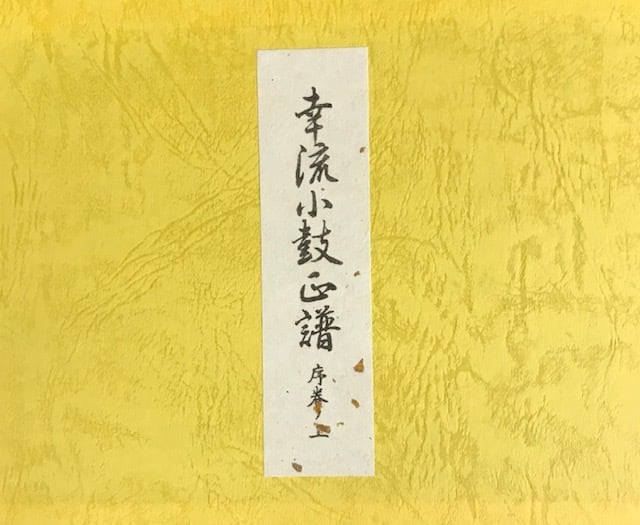 幸流小鼓正譜 序巻ノ上